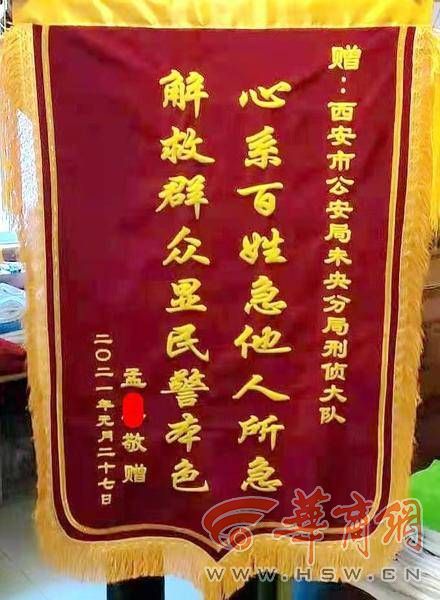 赠：西安市公安局未央分局刑侦大队
心系百姓急他人所急
解救群众显民警本色
孟 敬赠
二〇二一年元月二十七日
華商網
WWW.HSW.CN